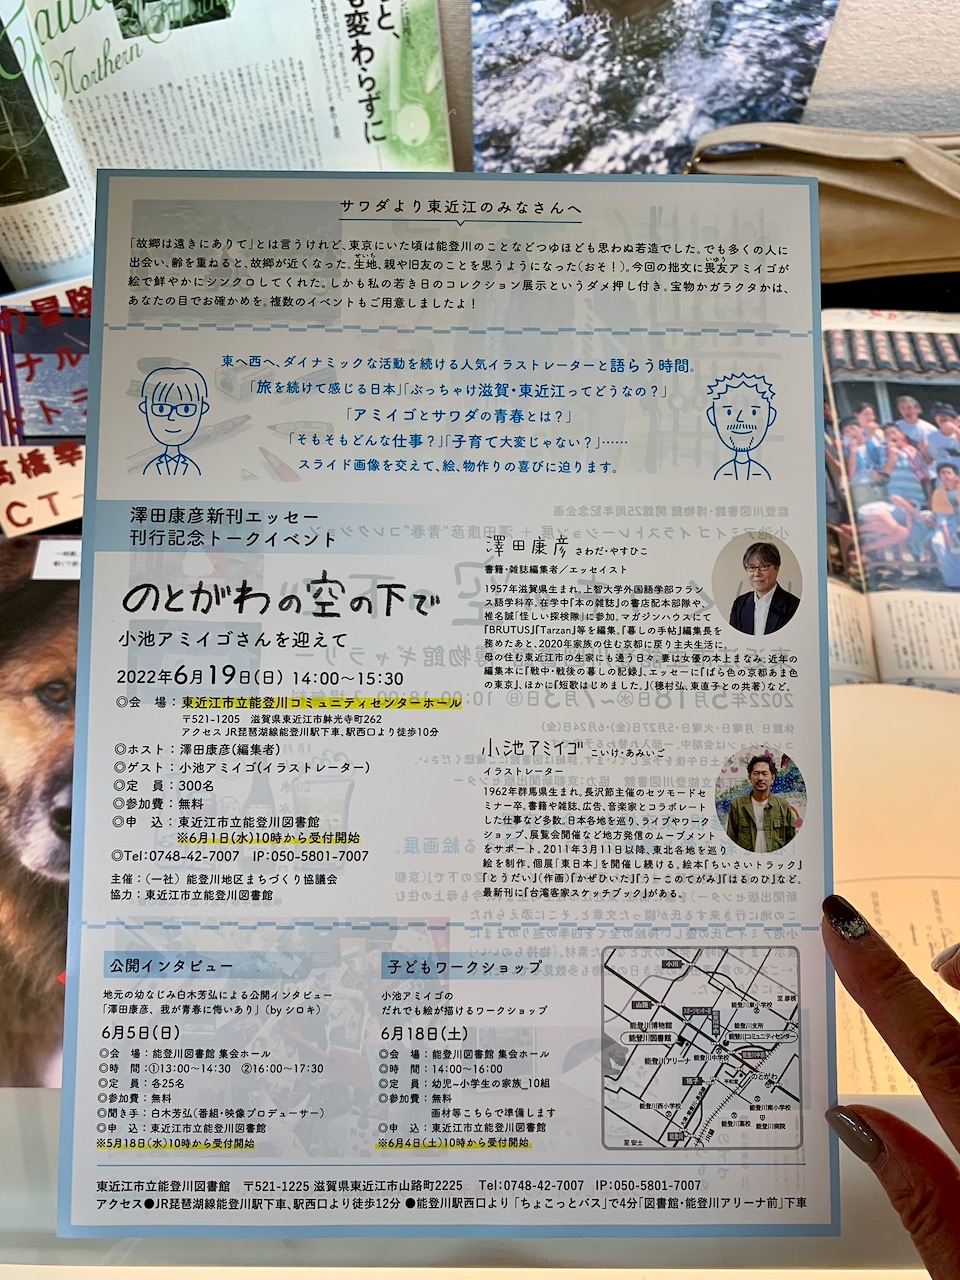 と、
も変わらずに
Northern
サワダより東近江のみなさんへ
「故郷は遠きにありて」とは言うけれど、東京にいた頃は能登川のことなどつゆほども思わぬ若造でした。でも多くの人に
出会い、齢を重ねると、故郷が近くなった。生地、親や旧友のことを思うようになった(おそ!)。今回の拙文に畏友アミイゴが
絵で鮮やかにシンクロしてくれた。しかも私の若き日のコレクション展示というダメ押し付き。宝物かガラクタかは、
あなたの目でお確かめを。複数のイベントもご用意しましたよ!
東へ西へ、ダイナミックな活動を続ける人気イラストレーターと語らう時間。
「旅を続けて感じる日本」「ぶっちゃけ滋賀・東近江ってどうなの?」
「アミイゴとサワダの青春とは?」
「そもそもどんな仕事?」「子育て大変じゃない?」……
スライド画像を交えて、絵、物作りの喜びに迫ります。
澤田康彦新刊エッセー
刊行記念トークイベント
のとがわの空の下で
小池アミイゴさんを迎えて
2022年6月19日(日) 14:00〜15:30
◎会 場:東近江市立能登川コミュニティセンターホール
〒521-1205 滋賀県東近江市躰光寺町262
アクセス JR琵琶湖線能登川駅下車、駅西口より徒歩10分
◎ホスト:澤田康彦(編集者)
◎ゲスト:小池アミイゴ(イラストレーター)
◎定 員:300名
◎参加費:無料
◎申 込:東近江市立能登川図書館
※6月1日(水)10時から受付開始
◎Tel:0748-42-7007 IP:050-5801-7007
主催:(一社)能登川地区まちづくり協議会
協力:東近江市立能登川図書館
澤田康彦 さわだ・やすひこ
書籍・雑誌編集者/エッセイスト
1957年滋賀県生まれ。上智大学外国語学部フラン
ス語学科卒。在学中『本の雑誌』の書店配本部隊や、
椎名誠「怪しい探検隊」に参加。マガジンハウスにて
『BRUTUS』『Tarzan』等を編集。『暮しの手帖』編集長を
務めたあと、2020年家族の住む京都に戻り主夫生活に。
母の住む東近江市の生家にも通う日々。妻は女優の本上まなみ。近年の
編集本に『戦中・戦後の暮しの記録』、エッセーに『ばら色の京都あま色
の東京』、ほかに『短歌はじめました。』(穂村弘、東直子との共著)など。
小池アミイゴ こいけ・あみいご
イラストレーター
1962年群馬県生まれ。長沢節主催のセツモードセ
ミナー卒。書籍や雑誌、広告、音楽家とコラボレート
した仕事など多数。日本各地を巡り、ライブやワーク
ショップ、展覧会開催など地方発信のムーブメント
をサポート。2011年3月11日以降、東北各地を巡り
絵を制作、個展「東日本」を開催し続ける。絵本『ちいさいトラック』
『とうだい』(作画)『かぜひいた』『うーこのてがみ』『はるのひ』など。
最新刊に『台湾客家スケッチブック』がある。
公開インタビュー
地元の幼なじみ白木芳弘による公開インタビュー
「澤田康彦、我が青春に悔いあり」(by シロキ)
6月5日(日)
◎会 場:能登川図書館 集会ホール
◎時 間:①13:00〜14:30 ②16:00〜17:30
◎定 員:各25名
◎参加費:無料
◎聞き手:白木芳弘(番組・映像プロデューサー)
◎申 込:東近江市立能登川図書館
※5月18日(水)10時から受付開始
子どもワークショップ
小池アミイゴの
だれでも絵が描けるワークショップ
6月18日(土)
◎会 場:能登川図書館 集会ホール
◎時 間:14:00〜16:00
◎定 員:幼児〜小学生の家族_10組
◎参加費:無料
画材等こちらで準備します
◎申 込:東近江市立能登川図書館
※6月4日(土)10時から受付開始
至 彦根
能登川東小学校
能登川支所
能登川博物館
能登川図書館
能登川コミュニティセンター
能登川アリーナ
能登川中学校
のとがわ
能登川西小学校
能登川南小学校
能登川高校
能登川病院
至 安土
東近江市立能登川図書館 〒521-1225 滋賀県東近江市山路町2225 Tel:0748-42-7007 IP:050-5801-7007
アクセス●JR琵琶湖線能登川駅下車、駅西口より徒歩12分 ●能登川駅西口より「ちょこっとバス」で4分「図書館・能登川アリーナ前」下車